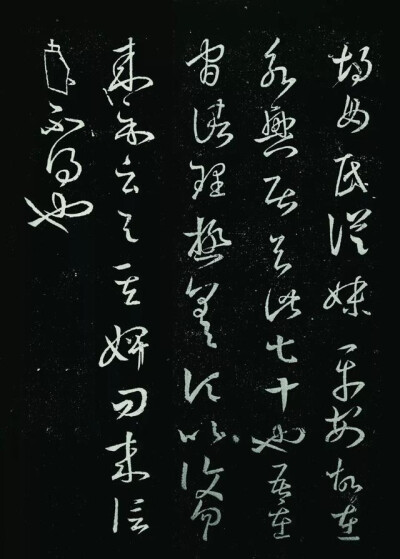 胡母氏從妹平安故在
永興居去此七十也吾在
官諸理極差頃比復勿勿
來示云與其婢問來信
不得也